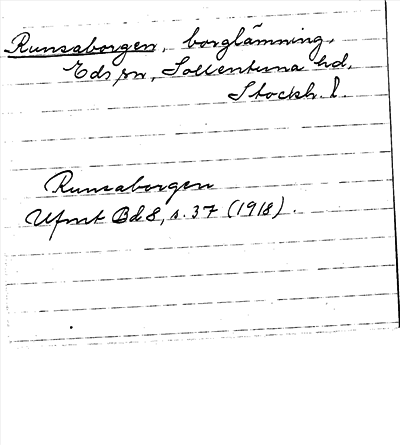 Runsaborgen, borglämning,
Eds sn, Sollentuna hd,
Stockh. l.
Runsaborgen
Ufmt Bd 8, s. 37 (1918).